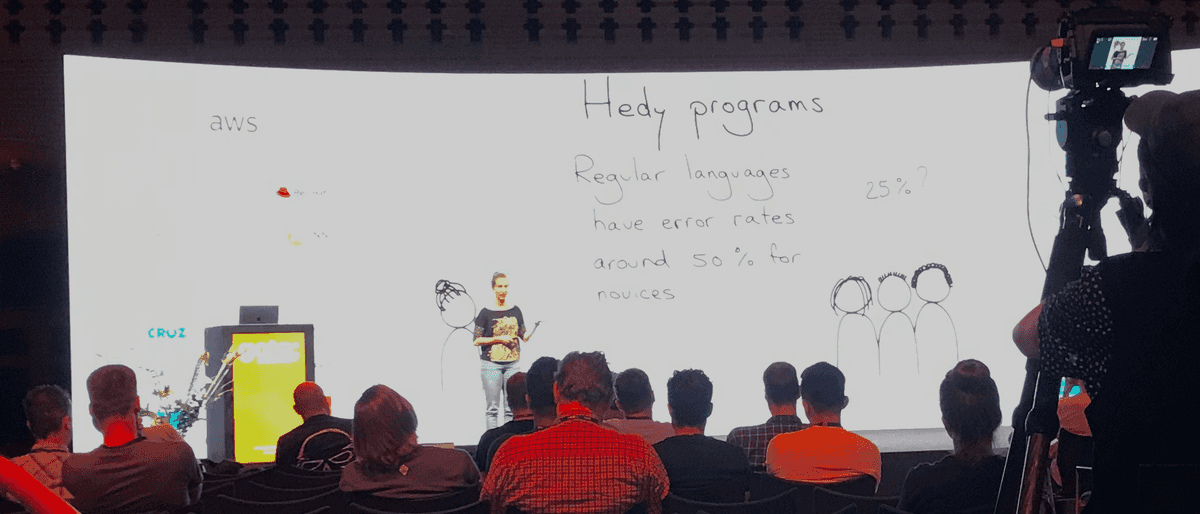 aws
CRUZ
Hedy programs
Regular languages
have error rates
around 50% for
novices
25%?